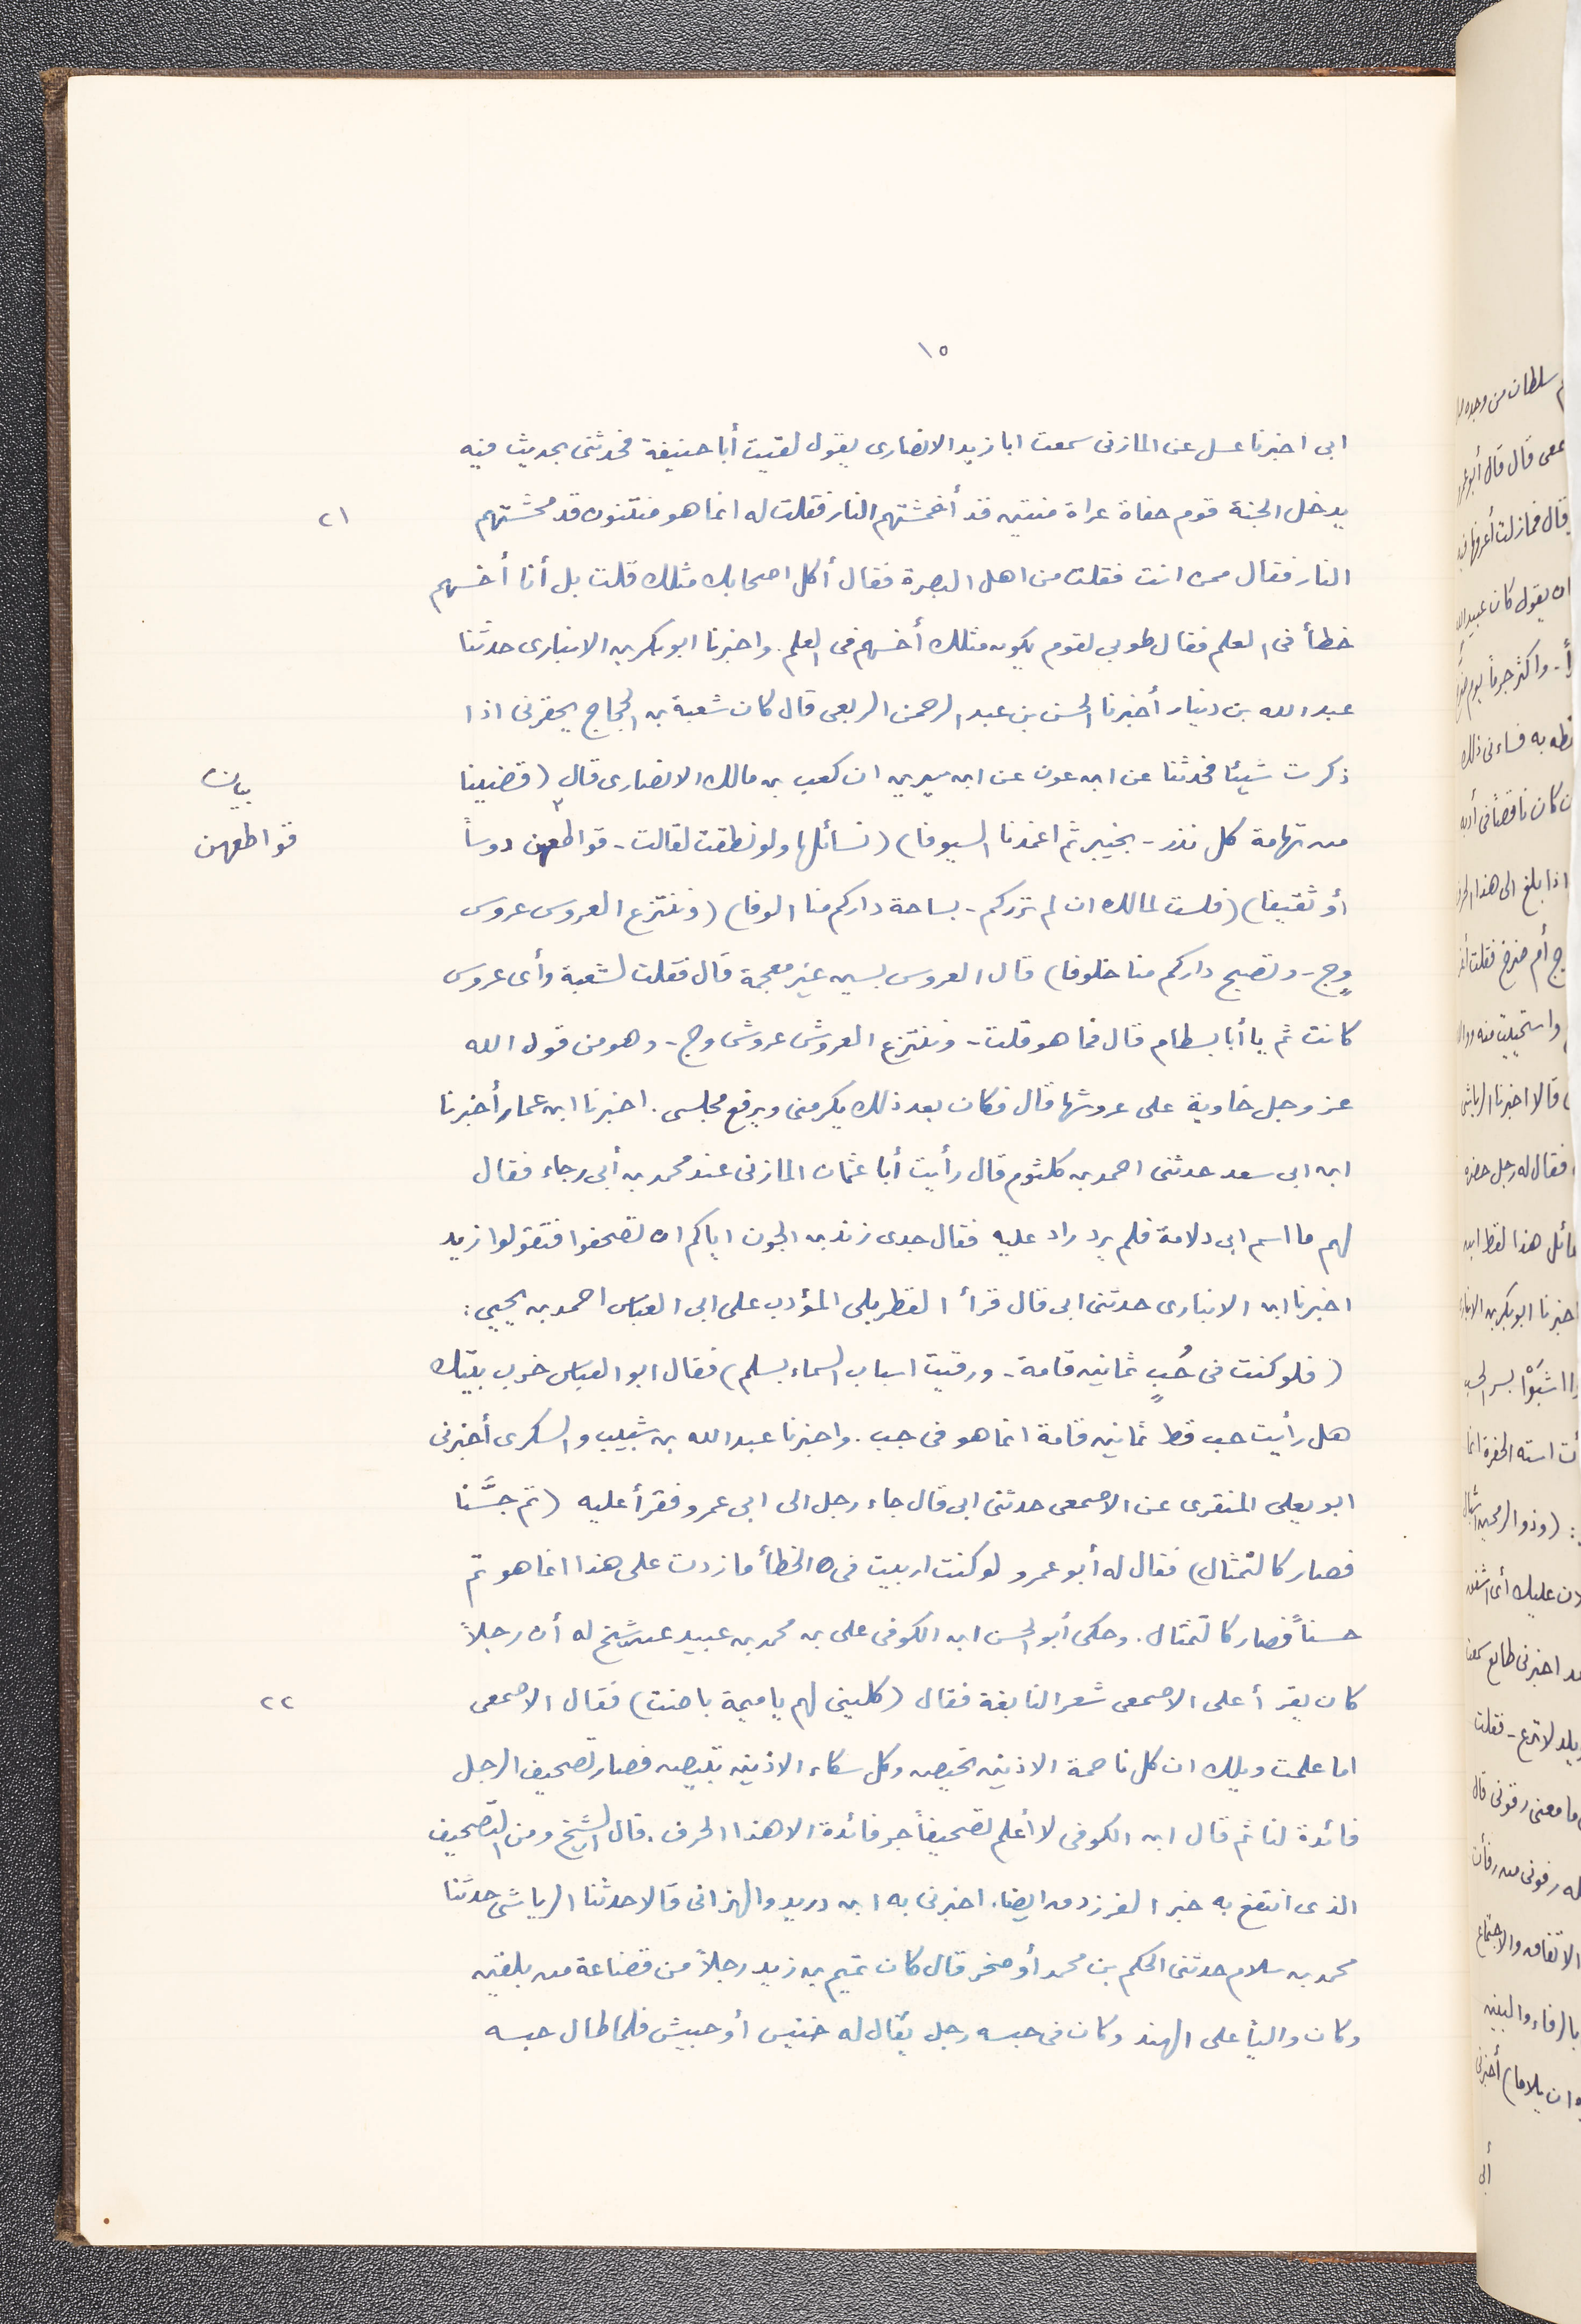 ١٥
ابى اخبرنا عسل عن المازنى سمعت ابا زيد الانصارى يقول لقيت أبا حنيفة فحدثنى بحديث فيه
يدخل الجنة قوم حفاة عراة منتين قد أمحشتهم النار فقلت له انما هو منتنون قد محشتهم
٢١
النار فقال ممن انت فقلت من اهل البصرة فقال أكل اصحابك مثلك قلت بل أنا أخسهم
خطأ فى العلم فقال طوبى لقوم يكون مثلك أخسهم فى العلم. واخبرنا ابو بكر بن الانبارى حدثنا
عبد الله بن دينار أخبرنا الحسن بن عبد الرحمن الربعى قال كان شعبة بن الحجاج يحقرنى اذا
ذكرت شيئا فحدثنا عن ابن عون عن ابن سيرين ان كعب بن مالك الانصارى قال (قضينا
بيان
من تهامة كل نذر - بخيبر ثم اغمدنا السيوفا) (نسائلها ولو نطقت لقالت - قواطعهن دوساً
قواطعهن
أو ثقيفا) (فلست لمالك ان لم نزركم - بساحة داركم منا الوفا) (وننتزع العروس عروس
وجٍ - وتصبح داركم منا خلوفا) قال العروس بسين غير معجمة قال فقلت لشعبة وأى عروس
كانت ثم يا أبا بسطام قال فما هو قلت - وننتزع العروش عروش وج - وهو من قول الله
عز وجل خاوية على عروشها قال فكان بعد ذلك يكرمنى ويرفع مجلسى. اخبرنا ابن عمار أخبرنا
ابن ابى سعد حدثنى احمد بن كلثوم قال رأيت أبا عثمان المازنى عند محمد بن أبى رجاء فقال
لهم ما اسم ابى دلامة فلم يرد راد عليه فقال جدى زند بن الجون اياكم ان تصحفوا فتقولوا زيد
اخبرنا ابن الانبارى حدثنى ابى قال قرأ القطربلى المؤدب على ابى العباس احمد بن يحيى:
(فلو كنت فى حُبٍ ثمانين قامة - ورقيت اسباب السماء بسلم) فقال ابو العباس خرب بيتك
هل رأيت حب قط ثمانين قامة انما هو فى جب. واخبرنا عبد الله بن شبيب والسكرى أخبرنى
ابو يعلى المنقرى عن الاصمعى حدثنى ابى قال جاء رجل الى ابى عمرو فقرأ عليه (ثم جسَّنا
فصار كالتمثال) فقال له أبو عمرو لو كنت اربيت فى الخطأ ما زدت على هذا انما هو تم
حسناً فصار كالتمثال. وحكى أبو الحسن ابن الكوفى على بن محمد بن عبيد عن شيخ له أن رجلاً
كان يقرأ على الاصمعى شعر النابغة فقال (كلينى لهم يا ميمة باضت) فقال الاصمعى
٢٢
اما علمت ويلك ان كل ناصمة الاذنين تحيض وكل سكاء الاذنين تبيض فصار تصحيف الرجل
فائدة لنا ثم قال ابن الكوفى لا أعلم تصحيفاً جر فائدة الا هذا الحرف. قال الشيخ ومن التصحيف
الذى انتفع به خبر الفرزدق ايضا. اخبرنى به ابن دريد والهزانى قالا حدثنا الرياشى حدثنا
محمد بن سلام حدثنى الحكم بن محمد أو صخر قال كان تميم بن زيد رجلاً من قضاعة من بلقين
وكان والياً على الهند وكان فى حبسه رجل يقال له خنيس أو حبيش فلما طال حبسه